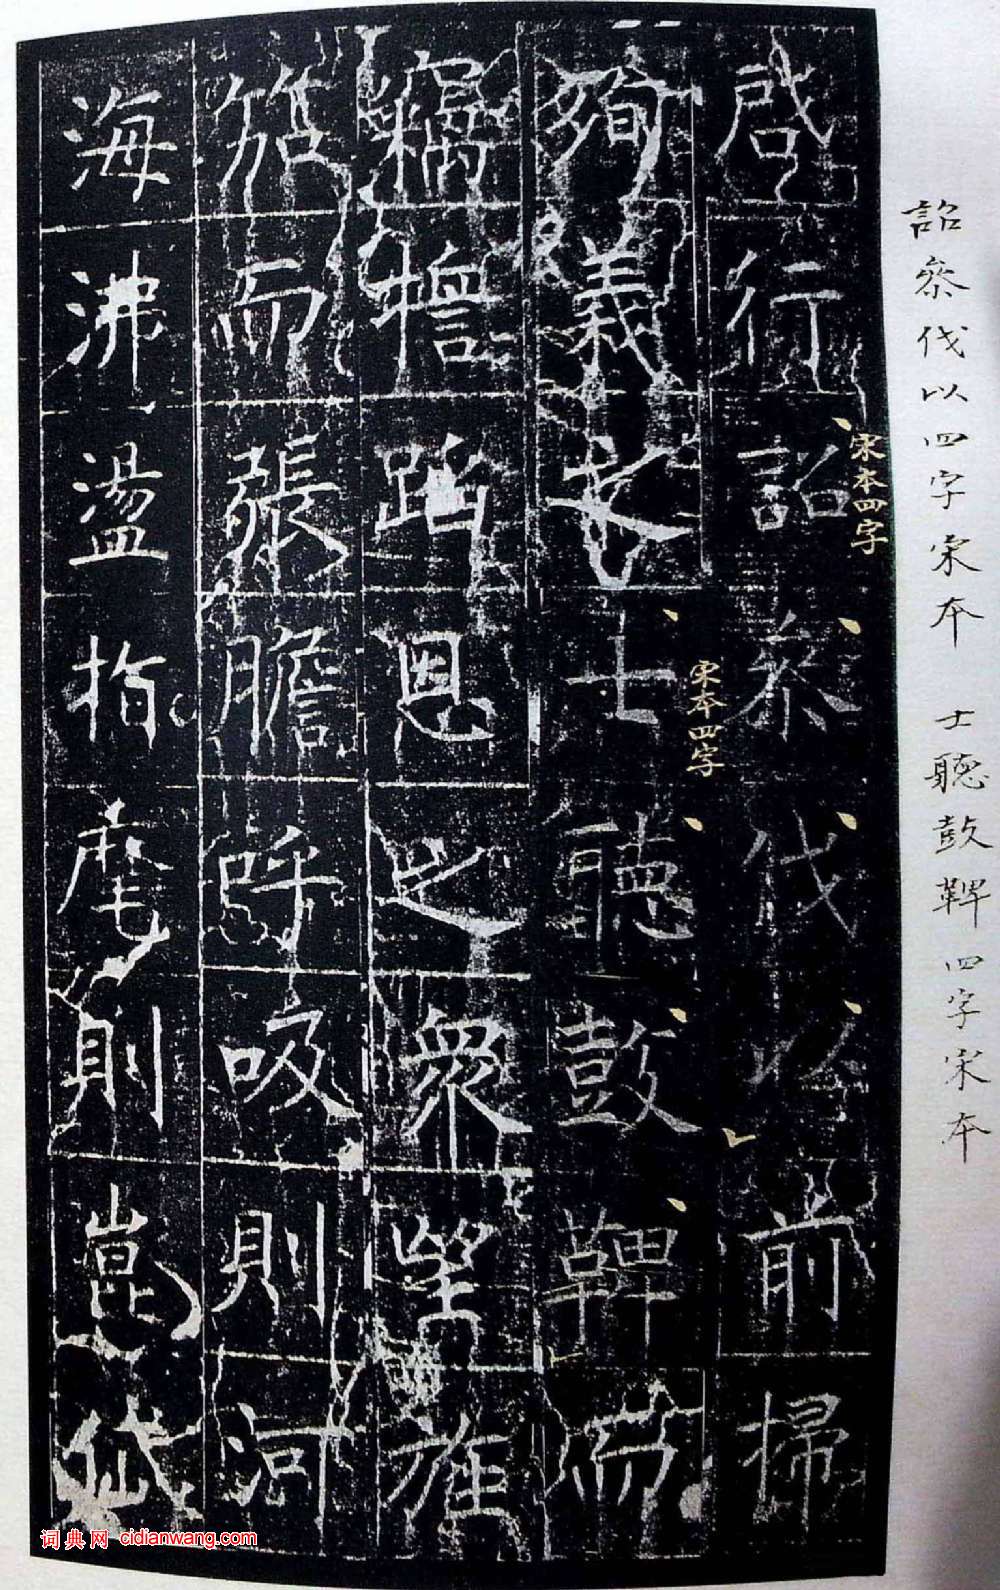 詔叅伐以四字宋本 士聽鼓鞞四字宋本
啓行詔叅伐以前掃
宋本四字
殉義之士聽鼓鞞而
宋本四字
竊擔蹈恩之衆望旌
笳而張膽呼吸則河
海沸盪指麾則嵩岱
词典网 cidianwang.com